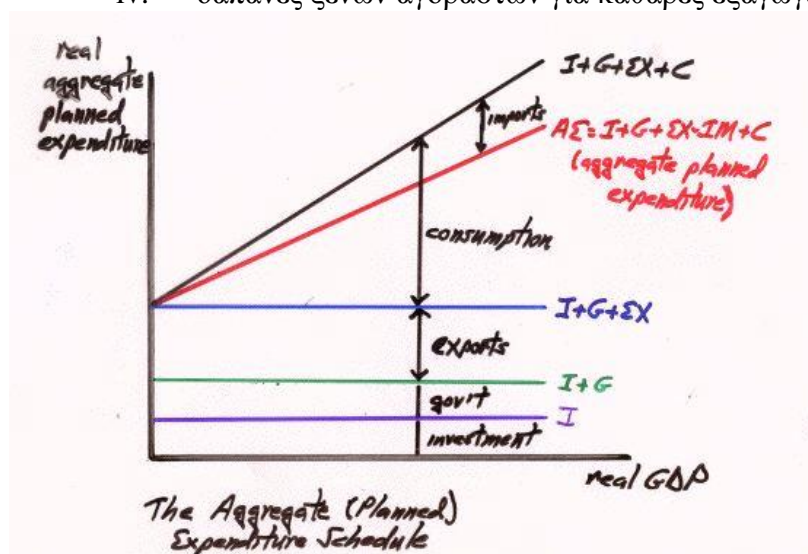 IV. δαπάνες ξένων αγοραστών για καθαρές εξαγωγ
real
aggregate
planned
expenditure
I+G+ΣX+C
imports
AΣ=I+G+ΣX-IM+C
(aggregate planned
expenditure)
consumption
I+G+ΣX
exports
I+G
gov't
I
investment
real GΔP
The Aggregate (Planned)
Expenditure Schedule